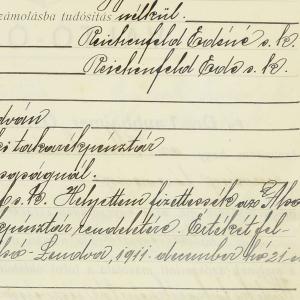 zámolásba tudósítás nélkül.
Reichenfeld Edéné s. k.
Reichenfeld Ede s. k.
dván
takarékpénztár
s. k. Helyettem fizettessék az Alsó
pénztár rendeletére. Értékét fel-
Lendva, 1911. december hó 21-